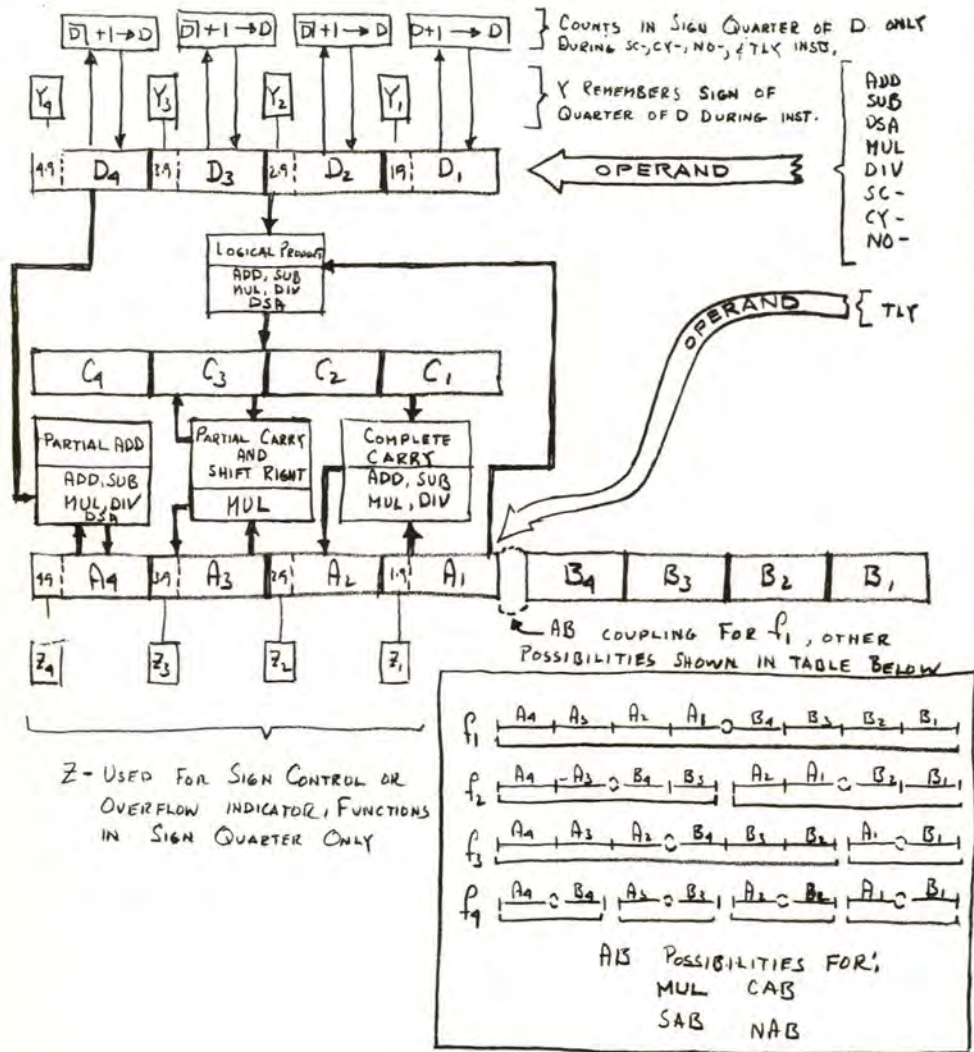 D̅|+1→D D̅|+1→D D̅|+1→D D+1→D
} COUNTS IN SIGN QUARTER OF D. ONLY
DURING SC-, CY-, NO-, & TLY INST.
Y4 Y3 Y2 Y1
} Y REMEMBERS SIGN OF
QUARTER OF D DURING INST.
ADD
SUB
DSA
MUL
DIV
SC-
CY-
NO-
4.9 D4 3.9 D3 2.9 D2 1.9 D1
OPERAND
LOGICAL PRODUCT
ADD, SUB
MUL, DIV
DSA
OPERAND
{ TLY
C4 C3 C2 C1
PARTIAL ADD
ADD, SUB
MUL, DIV
DSA
PARTIAL CARRY
AND
SHIFT RIGHT
MUL
COMPLETE
CARRY
ADD, SUB
MUL, DIV
4.9 A4 3.9 A3 2.9 A2 1.9 A1 B4 B3 B2 B1
Z4 Z3 Z2 Z1
AB COUPLING FOR f1, OTHER
POSSIBILITIES SHOWN IN TABLE BELOW
Z - USED FOR SIGN CONTROL OR
OVERFLOW INDICATOR, FUNCTIONS
IN SIGN QUARTER ONLY
f1 A4 A3 A2 A1 B4 B3 B2 B1
f2 A4 A3 B4 B3 A2 A1 B2 B1
f3 A4 A3 A2 B4 B3 B2 A1 B1
f4 A4 B4 A3 B3 A2 B2 A1 B1
AB POSSIBILITIES FOR:
MUL CAB
SAB NAB